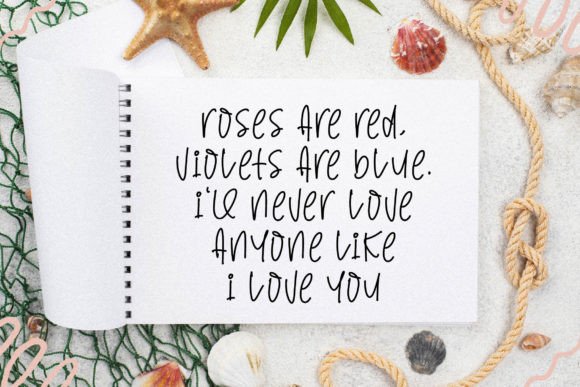 roses are red,
violets are blue.
i'll never love
anyone like
i love you